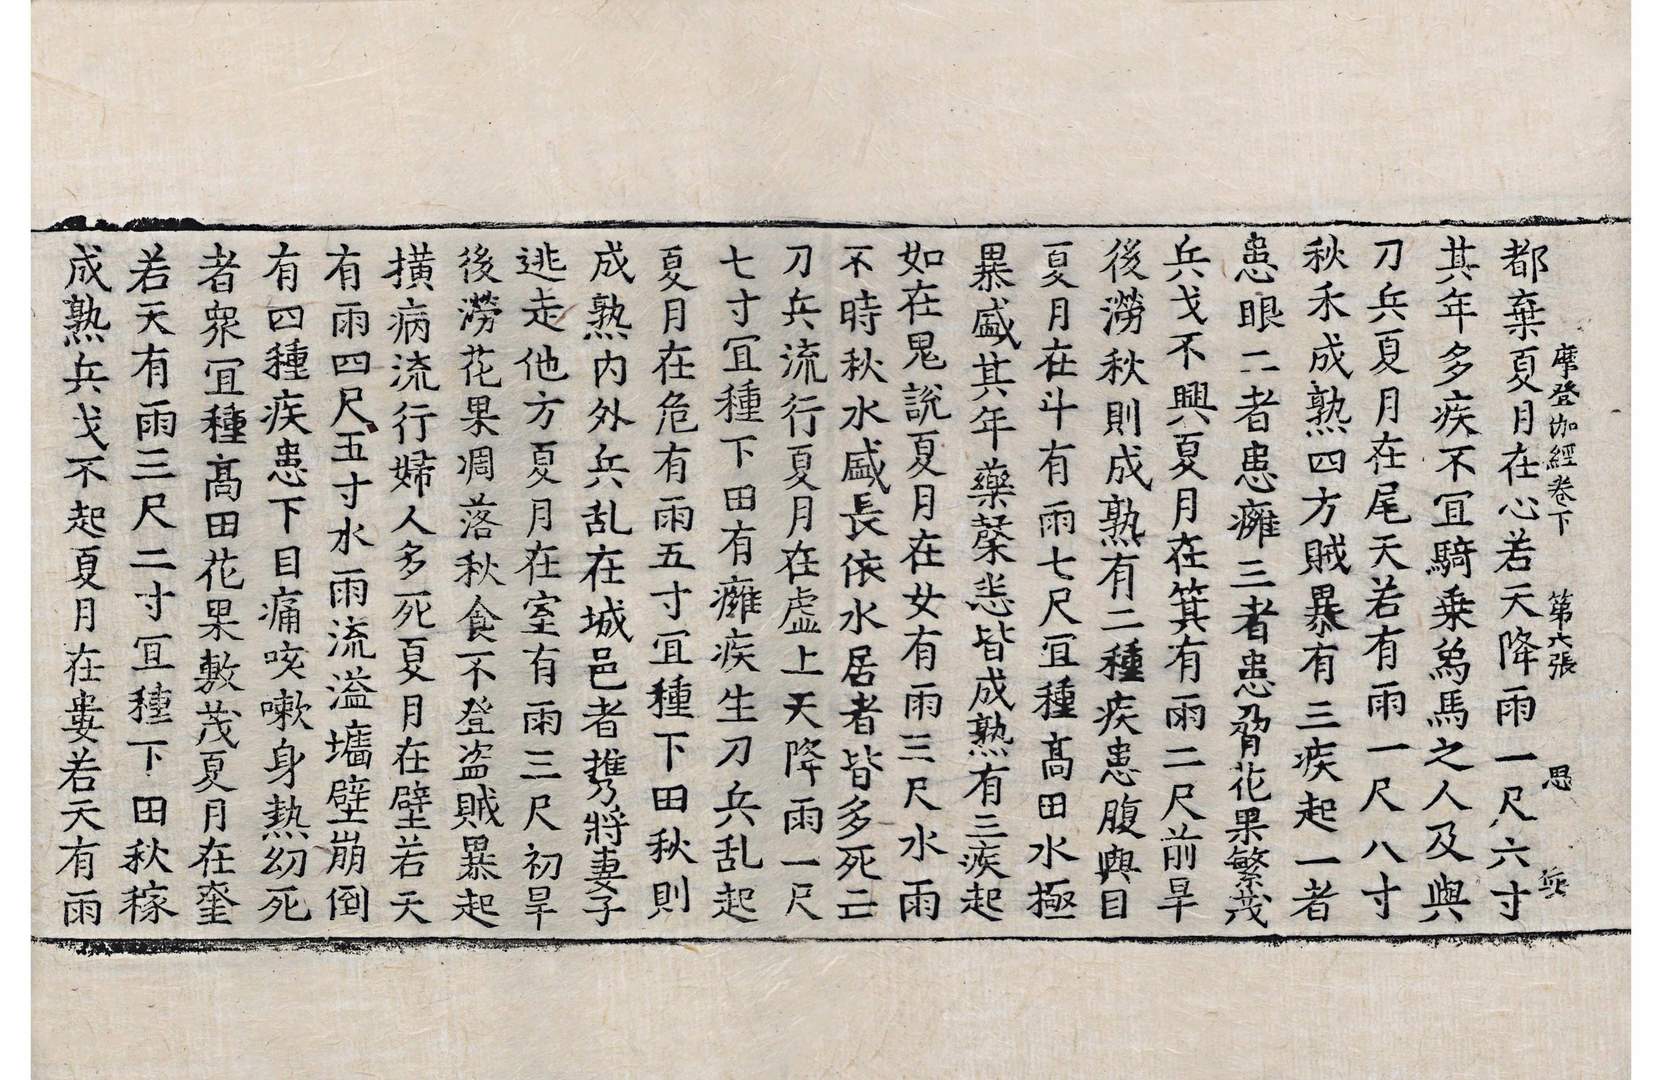 摩登伽經卷下　第六張　思
都棄夏月在心若天降雨一尺六寸
其年多疾不冝騎乗爲馬之人及與
刀兵夏月在尾天若有雨一尺八寸
秋禾成熟四方賊暴有三疾起一者
患眼二者患癰三者患脅花果繁茂
兵戈不興夏月在箕有雨二尺前旱
後澇秋則成熟有二種疾患腹與目
夏月在斗有雨七尺冝種髙田水極
暴盛其年藥榖悉皆成熟有三疾起
如在鬼說夏月在女有雨三尺水雨
不時秋水盛長依水居者皆多死亡
刀兵流行夏月在虛上天降雨一尺
七寸冝種下田有癰疾生刀兵乱起
夏月在危有雨五寸冝種下田秋則
成熟内外兵乱在城邑者携將妻子
逃走他方夏月在室有雨三尺初旱
後澇花果凋落秋食不登盜賊暴起
横病流行婦人多死夏月在壁若天
有雨四尺五寸水雨流溢墻壁崩倒
有四種疾患下目痛咳嗽身熱幼死
者衆冝種髙田花果敷茂夏月在奎
若天有雨三尺二寸冝種下田秋稼
成熟兵戈不起夏月在婁若天有雨